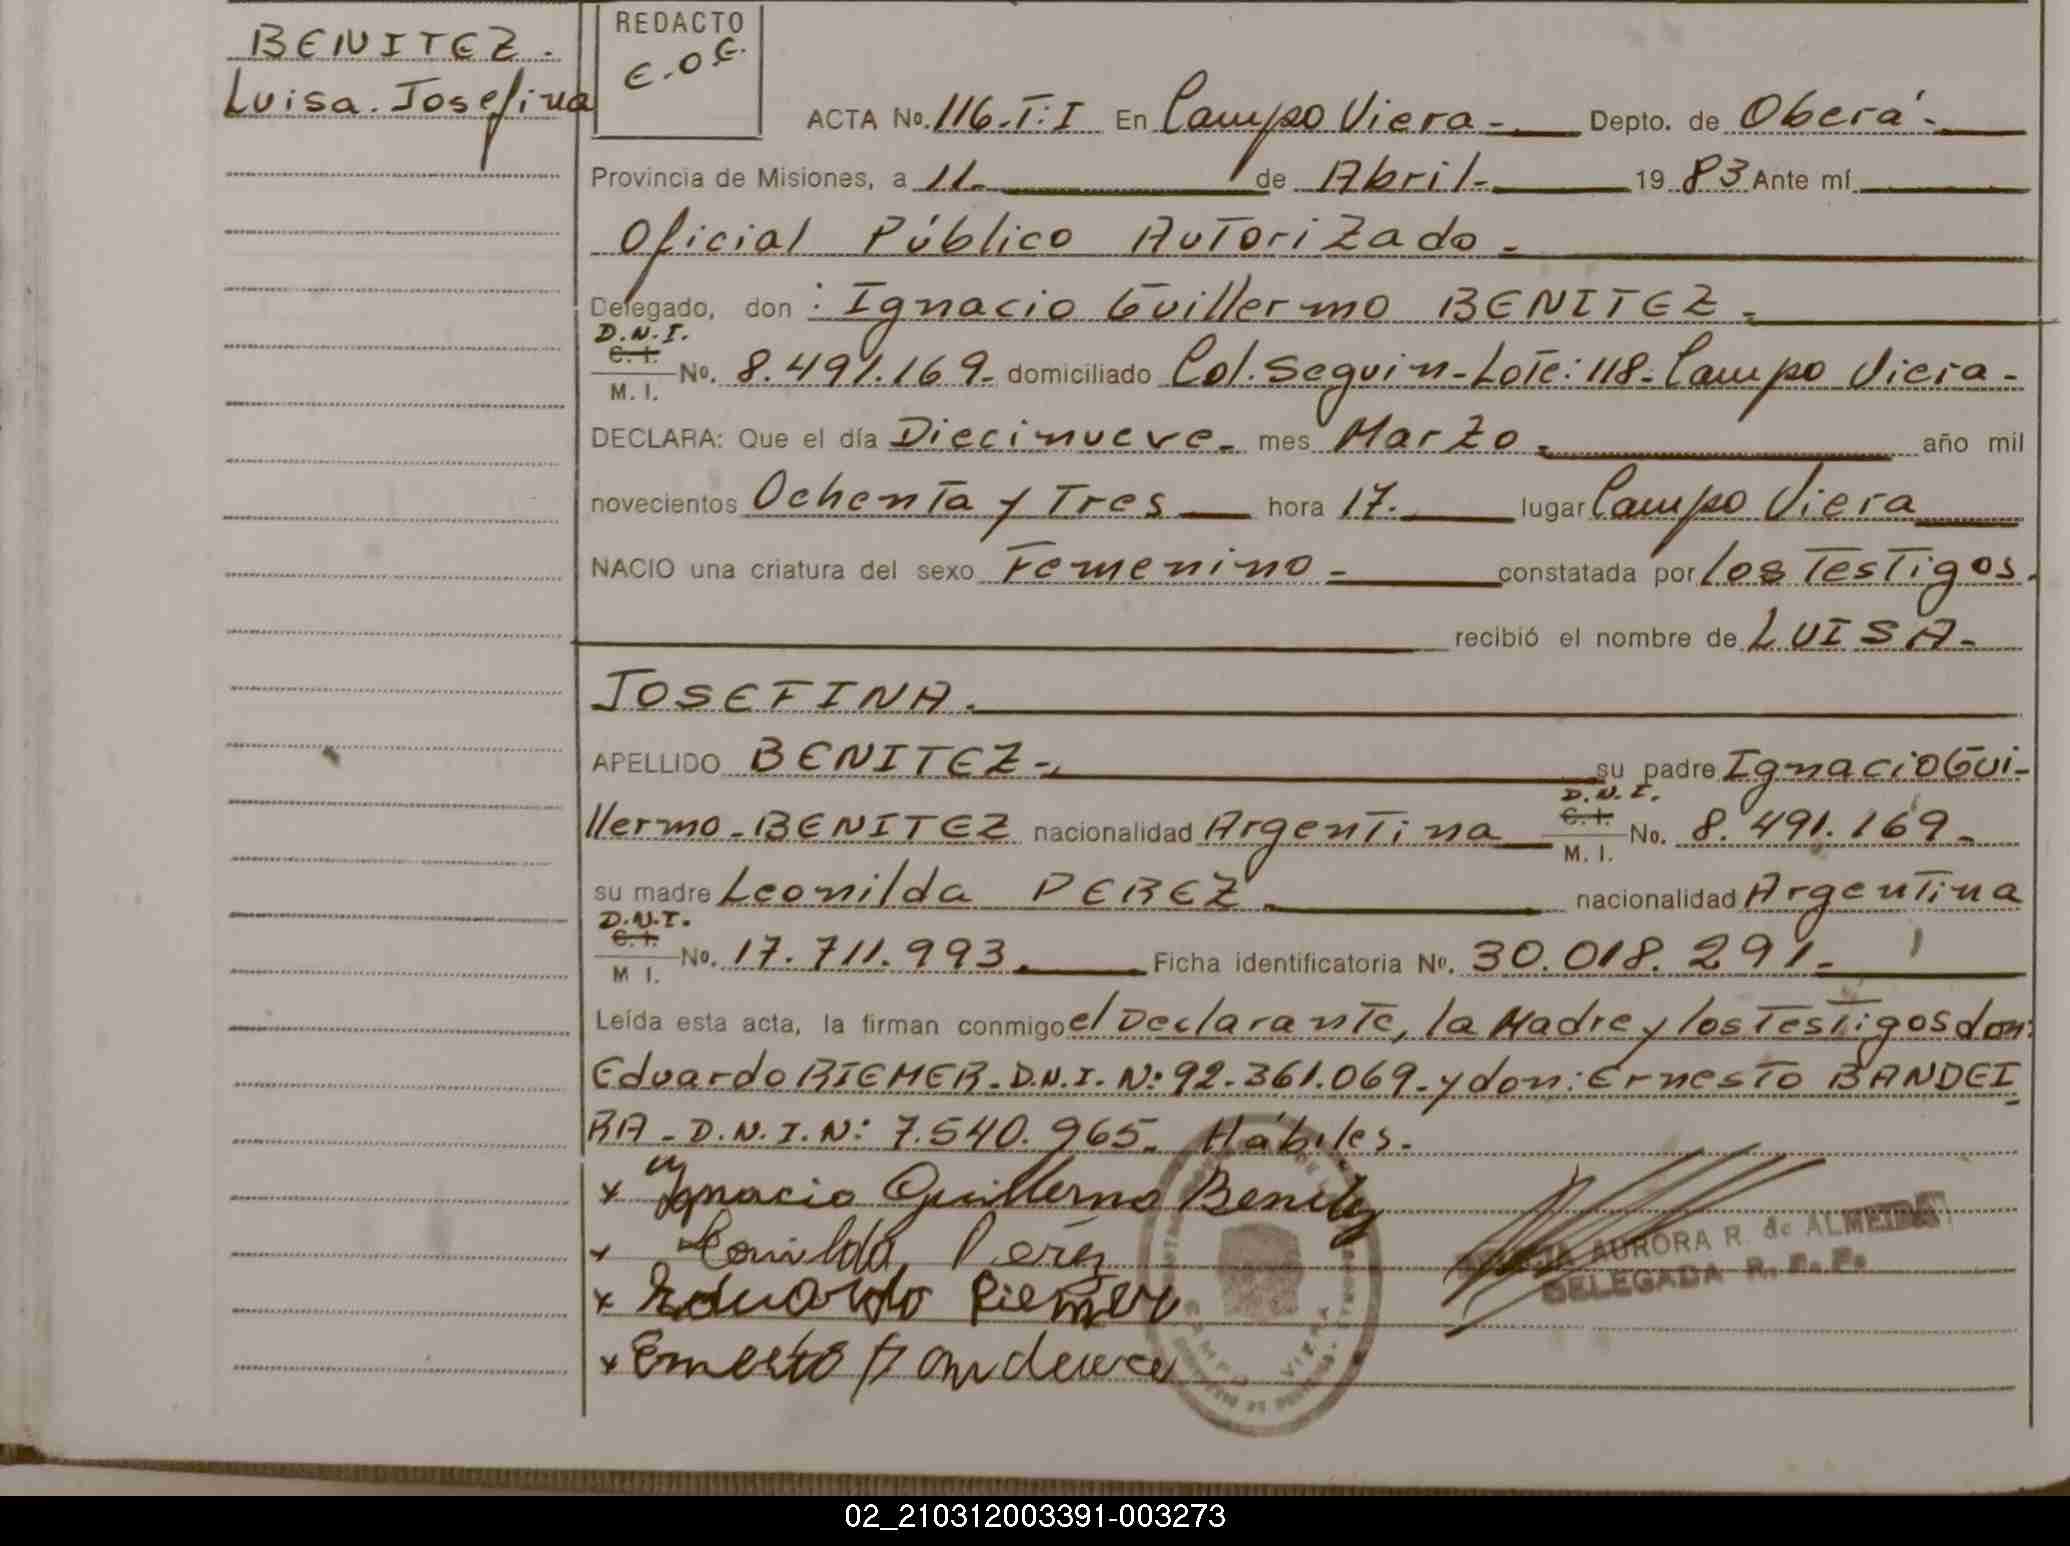 BENITEZ.
Luisa. Josefina
REDACTO
E.O.E.
ACTA No. 116-T:I En Campo Viera- Depto. de Oberá-
Provincia de Misiones, a 11- de Abril- 1983 Ante mí
Oficial Público Autorizado-
Delegado, don: Ignacio Guillermo BENITEZ-
D.N.I.
C.I.
M.I. No. 8.491.169- domiciliado Col. Seguin-Lote:118-Campo Viera-
DECLARA: Que el día Diecinueve- mes Marzo- año mil
novecientos Ochenta y Tres hora 17. lugar Campo Viera
NACIO una criatura del sexo Femenino- constatada por los Testigos.
recibió el nombre de LUISA-
JOSEFINA.
APELLIDO BENITEZ- su padre Ignacio Gui-
D.N.I.
C.I.
llermo-BENITEZ nacionalidad Argentina M.I. No. 8.491.169-
su madre Leonilda PEREZ- nacionalidad Argentina
D.N.I.
C.I.
M I. No. 17.711.993. Ficha identificatoria No. 30.018.291-
Leída esta acta, la firman conmigo el Declarante, la Madre y los Testigos don:
Eduardo RIEMER-D.N.I.N:92-361.069-y don: Ernesto BANDEI
RA-D.N.I.N: 7.540.965- Hábiles.
x Ignacio Guillermo Benitez
x Leonilda Peréz
x Eduardo Riemer
x Ernesto Bandeira
AURORA R. de ALMEIDA
DELEGADA R. P. P.
CAMPO VIERA
02_210312003391-003273